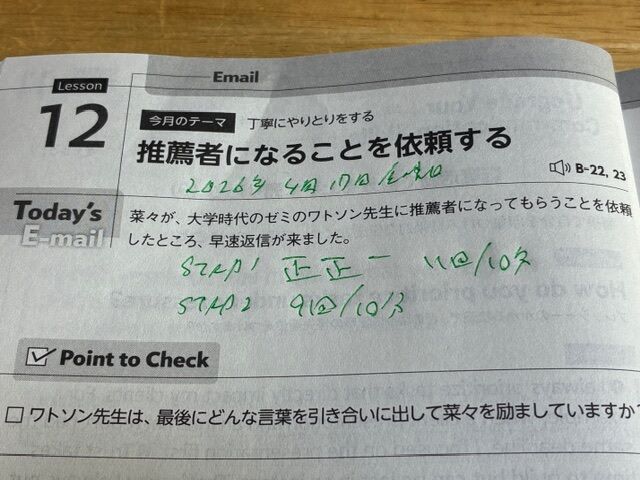 Email
Lesson
12
今月のテーマ 丁寧にやりとりをする
推薦者になることを依頼する
B-22, 23
2026年 4月17日金曜日
Today's
E-mail
菜々が、大学時代のゼミのワトソン先生に推薦者になってもらうことを依頼
したところ、早速返信が来ました。
STEP1 正正一 11回/10分
STEP2 9回/10分
Point to Check
ワトソン先生は、最後にどんな言葉を引き合いに出して菜々を励ましていますか?